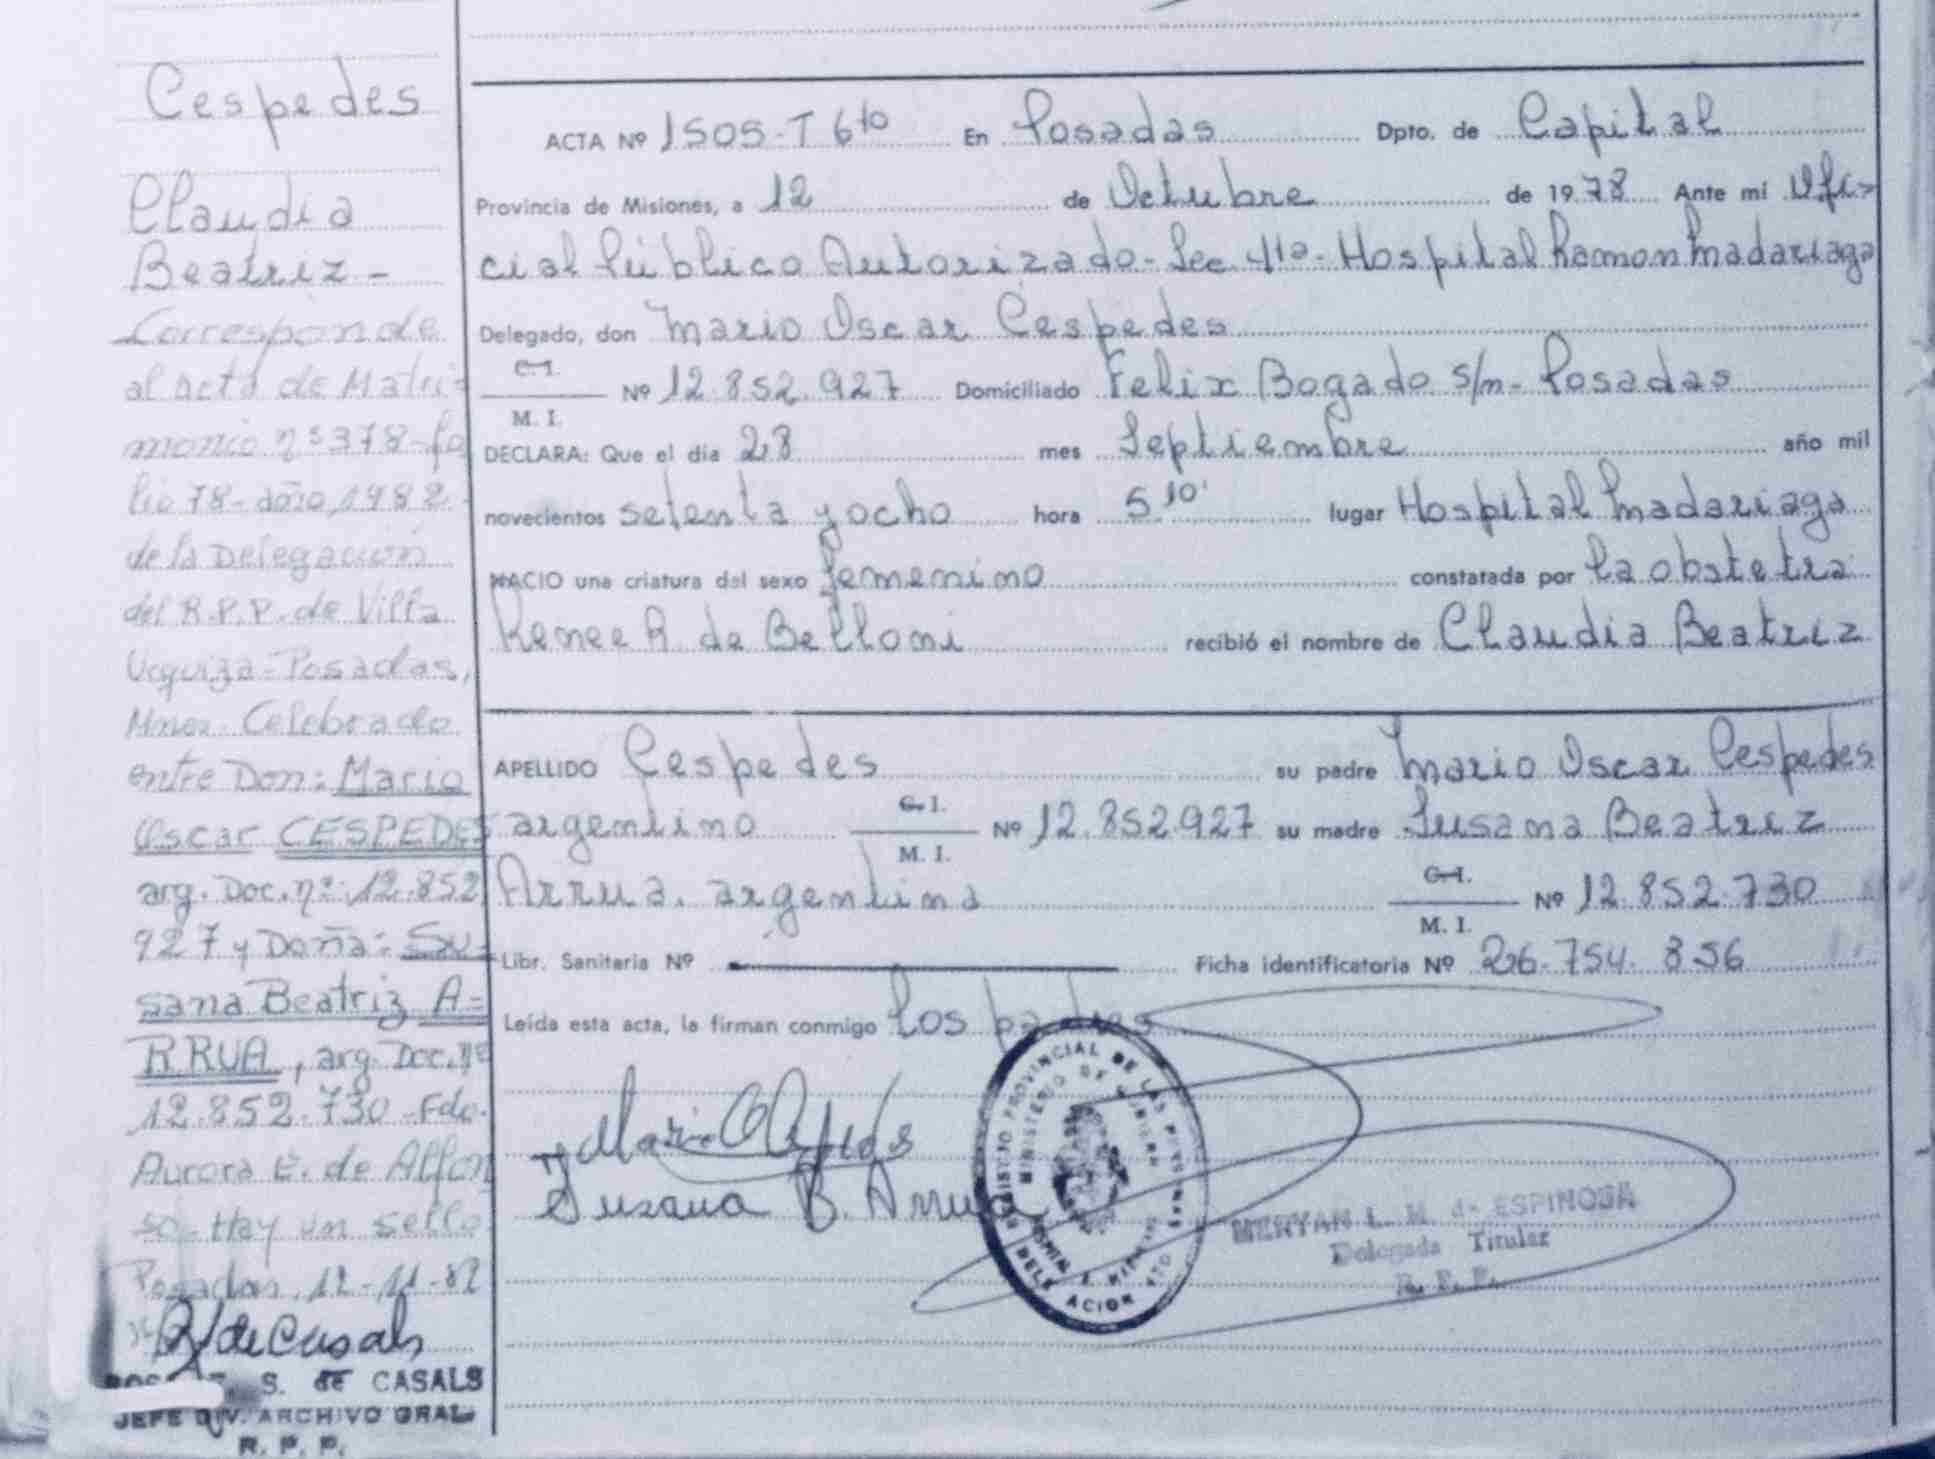 Cespedes
Claudia
Beatriz -
Corresponde
al acta de Matri=
monio nº 378 - fo
lio 78 - año 1982
de la Delegación
del R.P.P. de Villa
Urquiza - Posadas,
Mnes. Celebrado
entre Don: Mario
Oscar CESPEDES
arg. Doc. nº: 12.852
927 y Doña: Su=
sana Beatriz A=
RRUA, arg. Doc. nº
12.852.730 - Fdo.
Aurora E. de Alfon
so - Hay un sello
Posadas, 12-11-82
de Casals
S. de CASALS
JEFE DIV. ARCHIVO GRAL.
R. P. P.
ACTA Nº 1505 - T 6to En Posadas Dpto. de Capital
Provincia de Misiones, a 12 de Octubre de 1978 Ante mí Ofi=
cial Público Autorizado - Sec 4ta - Hospital Ramon Madariaga
Delegado, don Mario Oscar Cespedes
C. I.
M. I. Nº 12.852.927 Domiciliado Felix Bogado s/n - Posadas
DECLARA: Que el día 28 mes Septiembre año mil
novecientos setenta y ocho hora 5 10' lugar Hospital Madariaga
NACIO una criatura del sexo femenino constatada por la obstetra
Renee R. de Belloni recibió el nombre de Claudia Beatriz
APELLIDO Cespedes su padre Mario Oscar Cespedes
argentino C. I. M. I. Nº 12.852.927 su madre Susana Beatriz
Arrua. argentina C. I. M. I. Nº 12.852.730
Libr. Sanitaria Nº Ficha identificatoria Nº 26.754.856
Leída esta acta, la firman conmigo los padres
Mario O Cespedes
Susana B. Arrua
REGISTRO PROVINCIAL DE LAS PERSONAS
MINISTERIO DE GOBIERNO
MERYAN L. M. de ESPINOSA
Delegada Titular
R. P. P.